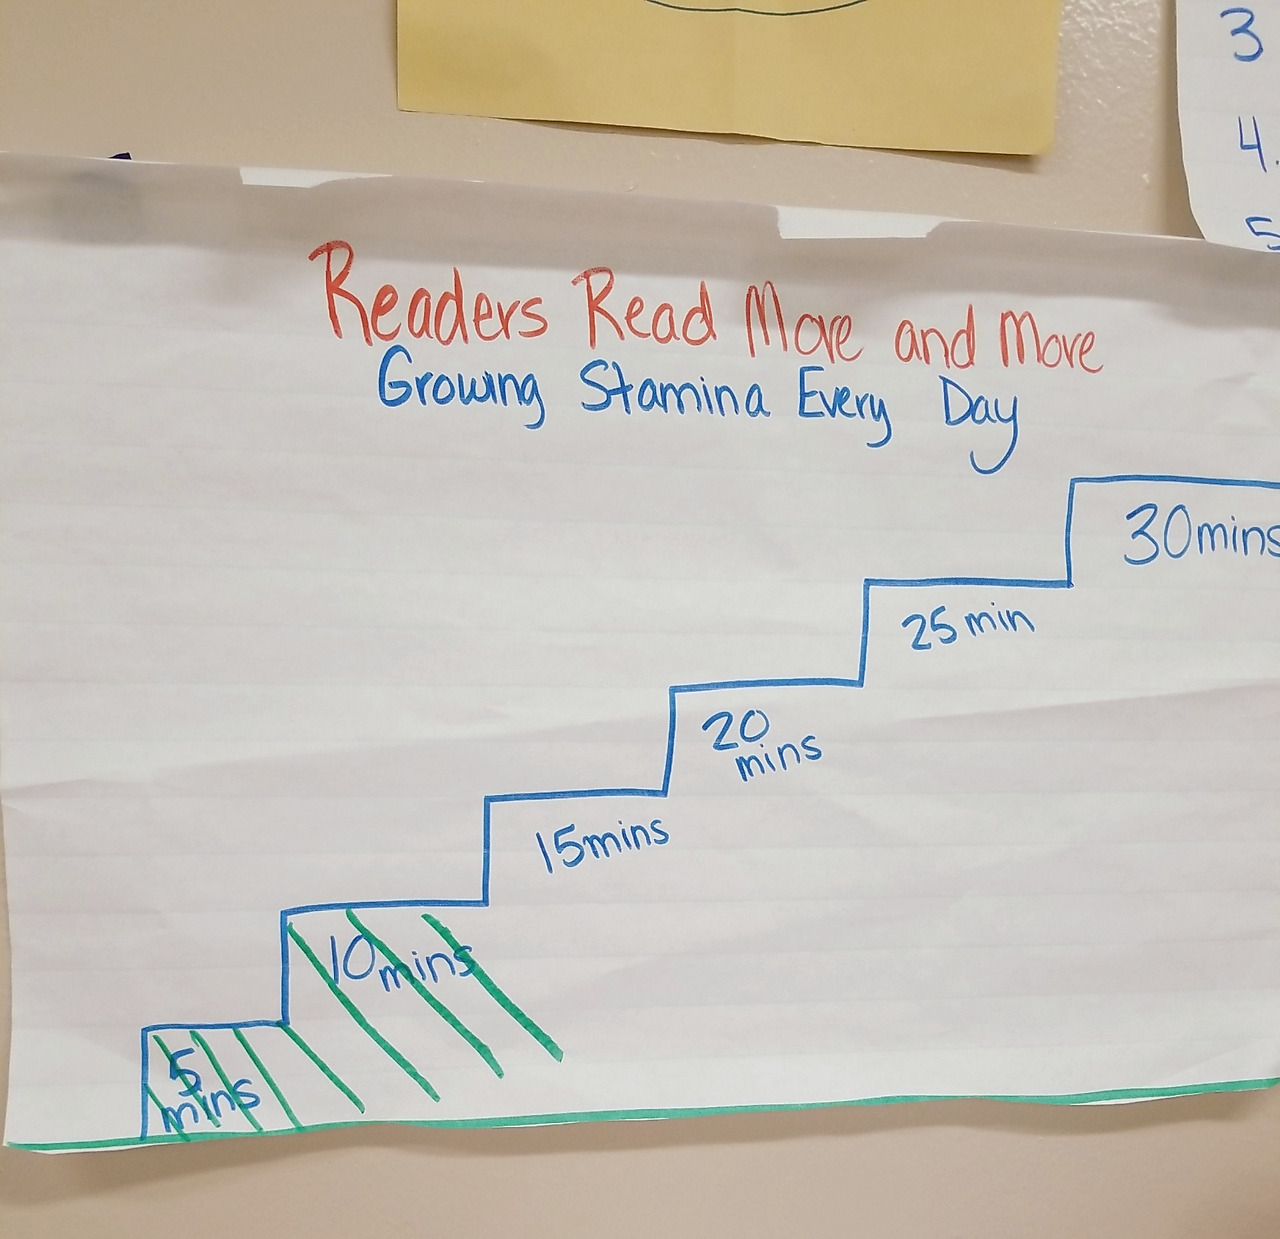 3
4.
5
Readers Read More and More
Growing Stamina Every Day
30mins
25 min
20
mins
15mins
10mins
5
mins